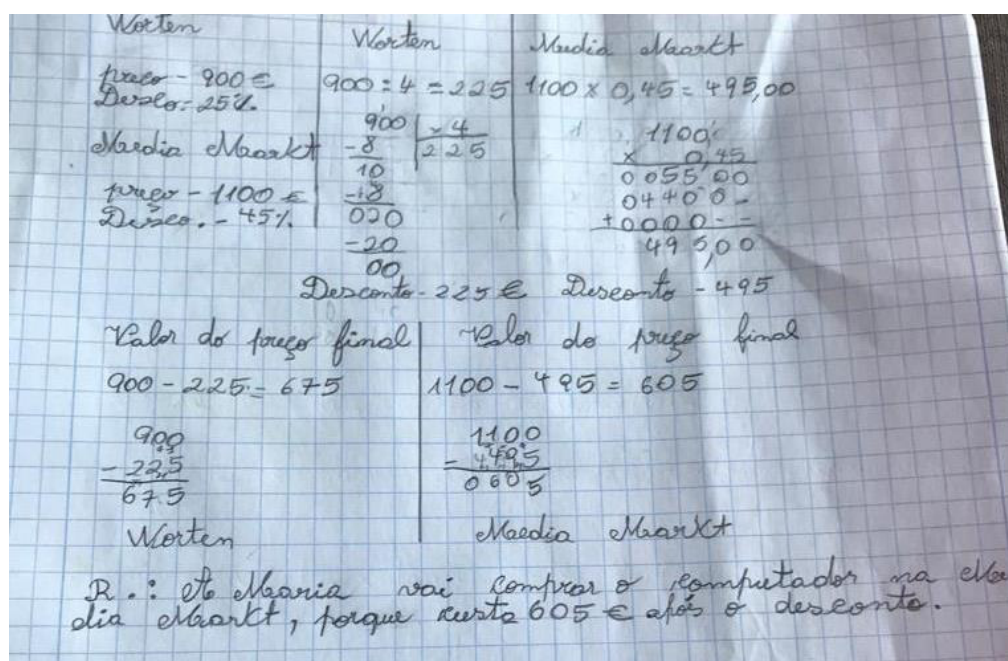 Worten
preço - 900 €
Desco = 25%
Media Maarkt
preço - 1100 €
Desco. - 45%
Worten
900 : 4 = 225
900 | 4
-8 225
10
-8
020
-20
00
Desconto - 225 €
Media Maarkt
1100 x 0,45 = 495,00
1100
x 0,45
005500
04400-
+0000--
495,00
Desconto - 495
Valor do preço final
900 - 225 = 675
900
- 225
675
Worten
Valor do preço final
1100 - 495 = 605
1100
- 495
0605
Media Maarkt
R.: A Maria vai comprar o computador na Me
dia Maarkt, porque custa 605 € após o desconto.